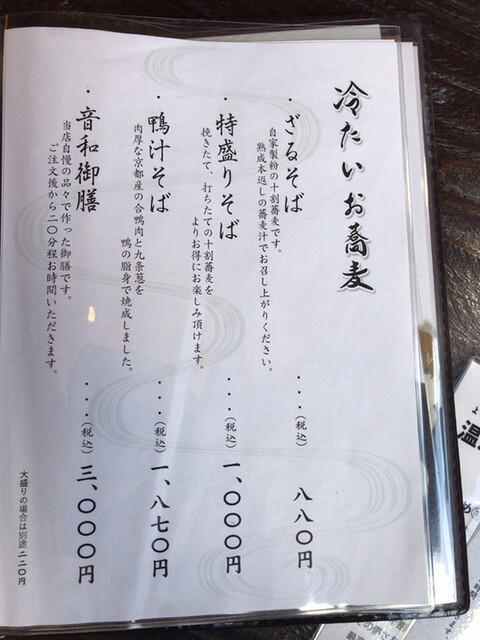 冷たいお蕎麦
・ざるそば
自家製粉の十割蕎麦です。
熟成本返しの蕎麦汁でお召し上がりください。
・・・(税込) 八八〇円
・特盛りそば
挽きたて、打ちたての十割蕎麦を
よりお得にお楽しみ頂けます。
・・・(税込) 一、〇〇〇円
・鴨汁そば
肉厚な京都産の合鴨肉と九条葱を
鴨の脂身で焼成しました。
・・・(税込) 一、八七〇円
・音和御膳
当店自慢の品々で作った御膳です。
ご注文後から二〇分程お時間いただきます。
・・・(税込) 三、〇〇〇円
大盛りの場合は別途二二〇円
温